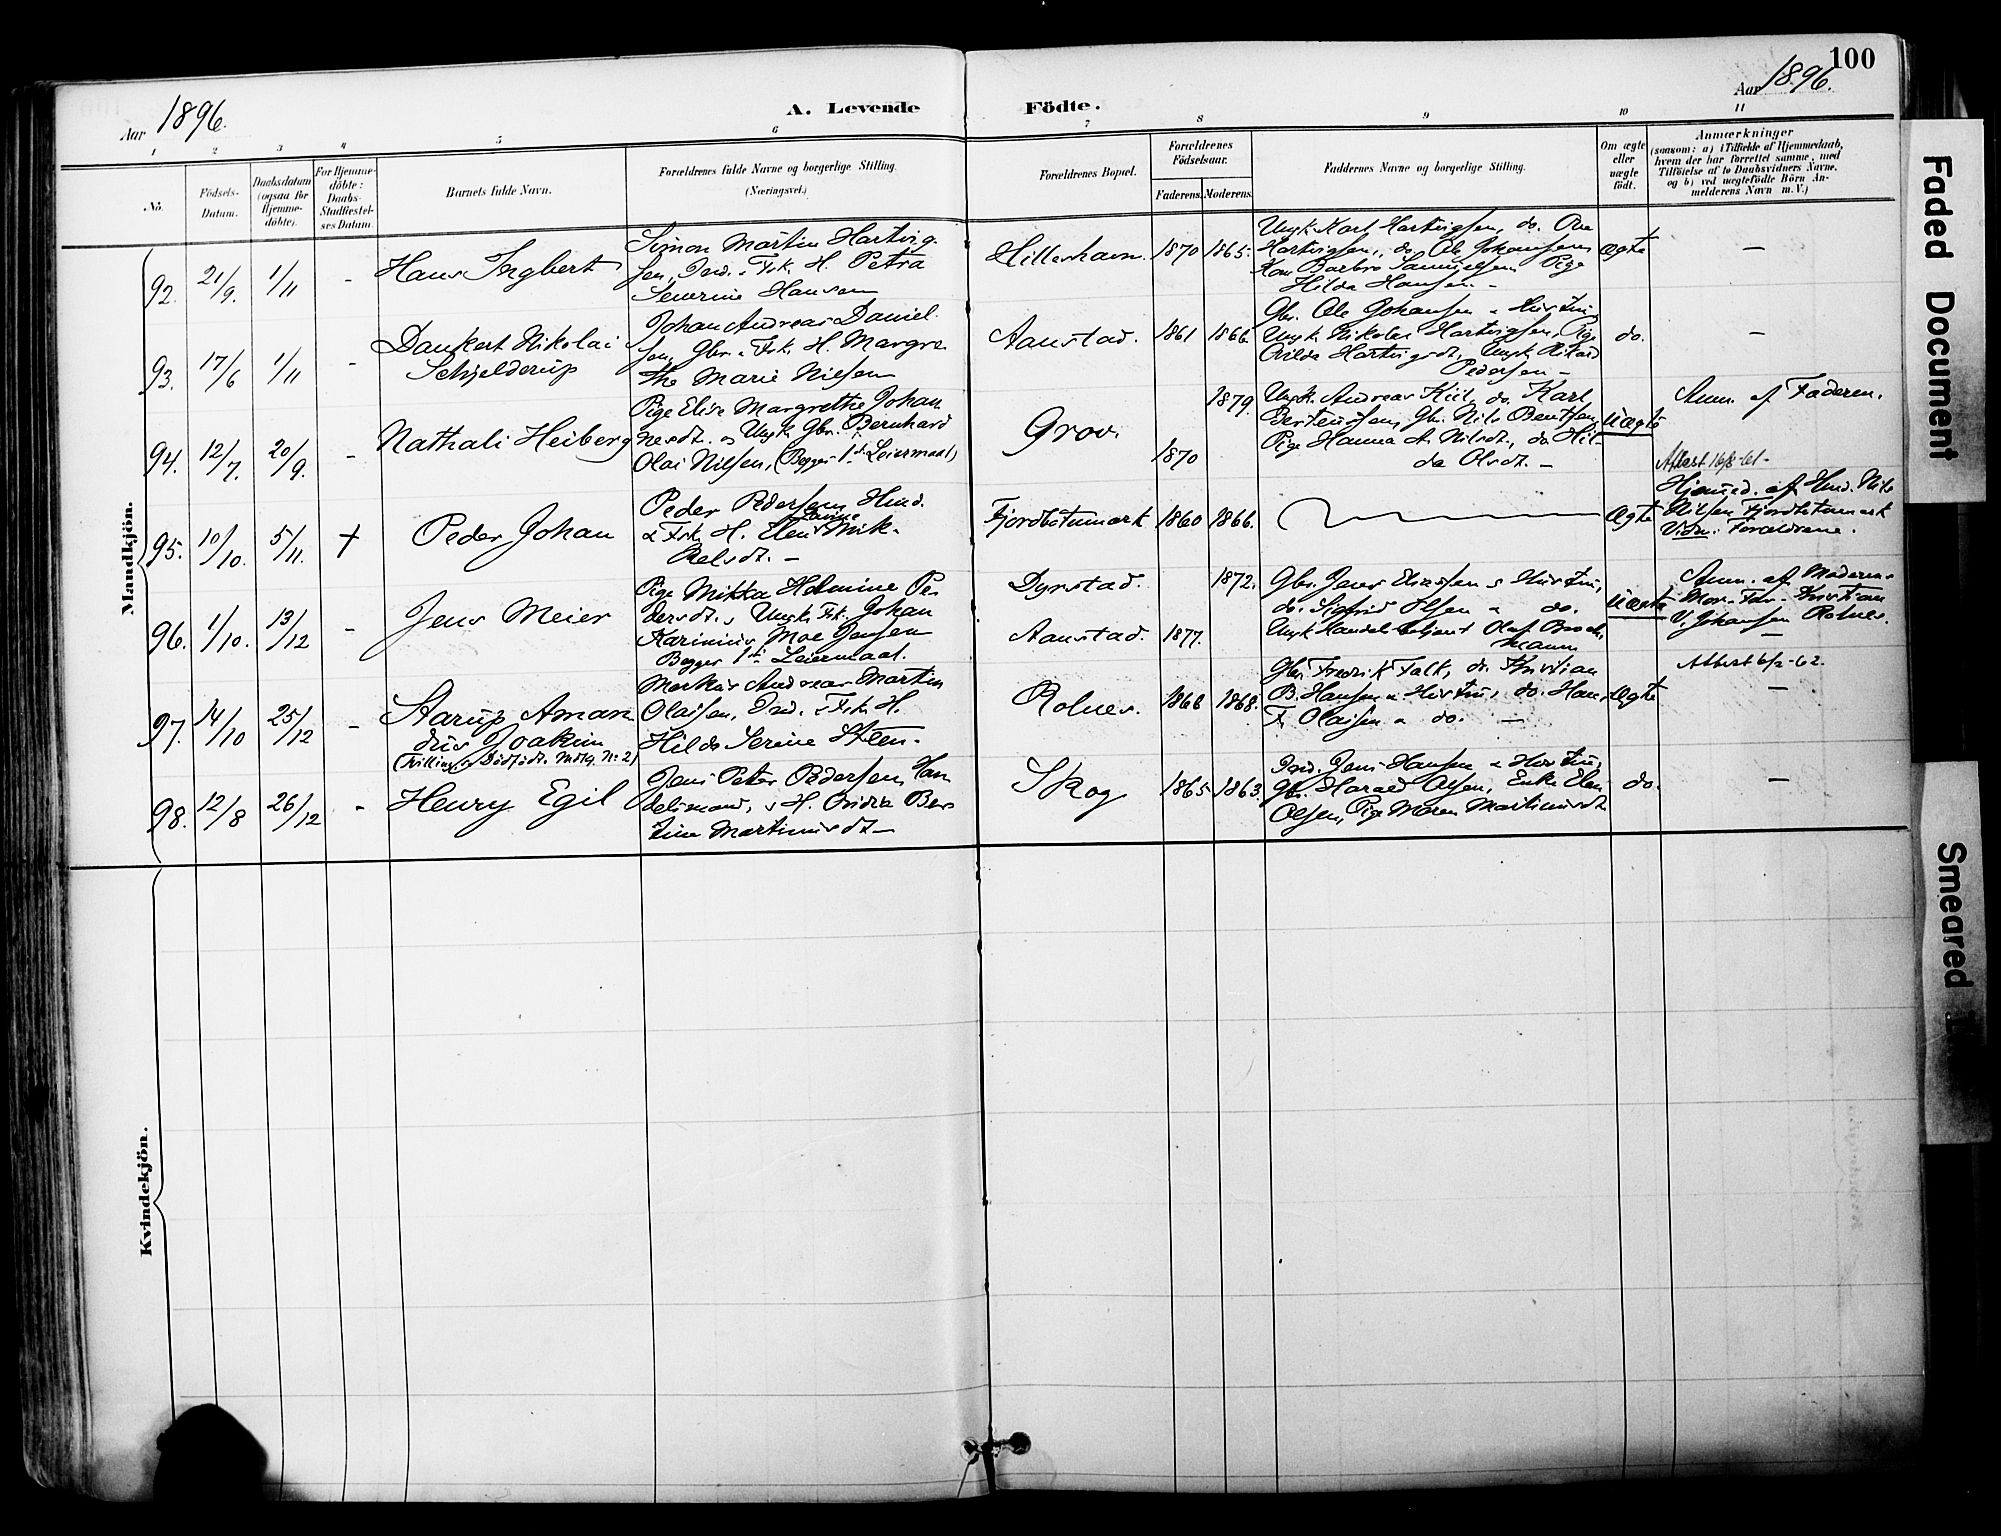 100
Aar 1896.
A. Levende Födte.
Aar 1896.
1 2 3 4 5 6 7 8 9 10 11
No.
Födsels-
Datum.
Daabsdatum
(ogsaa for
Hjemme-
döbte).
For Hjemme-
döbte:
Daabs-
Stadfæstel-
ses Datum.
Barnets fulde Navn.
Forældrenes fulde Navne og borgerlige Stilling.
(Næringsvei.)
Forældrenes Bopæl.
Forældrenes
Födselsaar.
Faderens. Moderens.
Faddernes Navne og borgerlige Stilling.
Om ægte
eller
uægte
födt.
Anmærkninger
(saasom: a) i Tilfælde af Hjemmedaab,
hvem der har forrettet samme, med
Tilföielse af to Daabsvidners Navne,
og b) ved uægtefödte Börn An-
melderens Navn m. V.)
Mandkjön.
92. 21/9. 1/11 -
Hans Ingbert
Simon Martin Hartvig-
sen, Ind. & Frk. H. Petra
Severine Hansen
Hilleshavn. 1870 1865.
Ungk. Karl Hartvigsen, do. Ove
Hartvigsen, do. Ole Johansen
Kone Barbro Samuelsen Pige
Hilda Hansen. -
Ægte
—
93. 17/6 1/11 -
Dankert Nikolai
Schjelderup
Johan Andreas Daniel-
sen, Gbr. & Frk. H. Margre-
the Marie Nilsen
Aanstad. 1861 1866.
Gbr. Ole Johansen & Hustru,
Ungk. Nikolai Hartvigsen, Pige
Hartvigsdt, Ungk.
Pedersen -
do.
—
94. 12/7. 20/9. -
Nathali Heiberg
Pige Elise Margrethe Johan-
nesdt. og Ungk. Gbr. Bernhard
Olai Nilsen, (Begges 1ste Leiermaal)
Grov. 1870 1879.
Ungk. Andreas Kiil, do. Karl
Berteussen, Gbr. Nils Bentsen
Pige Hanna A. Nilsdt., do. Hil-
da Olsdt. -
Uægte
Anm. af Faderen.
Attest 16/8-61-
95. 10/10. 5/11. +
Peder Johan
Peder Pedersen Hmd.
& Frk. H. Elen Mik-
kelsdt. -
Fjordbotnmark 1860 1866.
Ægte
Hjemmed. af Hmd. Nils
Nilsen Fjordbotnmark
Vidn: Forældrene.
96. 1/10. 13/12 -
Jens Meier
Pige Mikka Helmine Pe-
dersdt. & Ungk. Fsk. Johan
Karinius Moe Jensen
Begges 1ste Leiermaal.
Dyrstad.
Aanstad. 1877. 1872.
Gbr. Jens Eliassen & Hustru,
do. Sigfrid Olsen & do.
Ungk. Handelsbetjent Olaf Brock-
mann
Uægte
Anm. af Moderens
Mor-Fdr. Kristian
V. Johansen Rolnes.
—
97. 14/10 25/12 -
Starup Aman-
dus Joakim
(Tvilling Dödfödt. Mdkj. No 2)
Markus Andreas Martin
Olaisen, Ind. & Frk. H.
Hilda Serine Steen.
Rolnes. 1866 1868.
Gbr. Fredrik Falk, do. Kristian
B. Hansen & Hustru, do. Hans
F. Olaisen & do. —
Ægte
Attest 6/2-62.
—
98. 12/8 26/12 -
Henry Egil
Jens Peter Pedersen, Han-
delsmand, & H. Ber-
tine Martinusdt. -
Skog 1865 1863.
Ind. Jens Hansen & Hustru,
Gbr. Harald Olsen, Enke Elen
Olsen, Pige Maren Martinusdt
do.
—
Kvindekjön.
Faded Document
Smeared